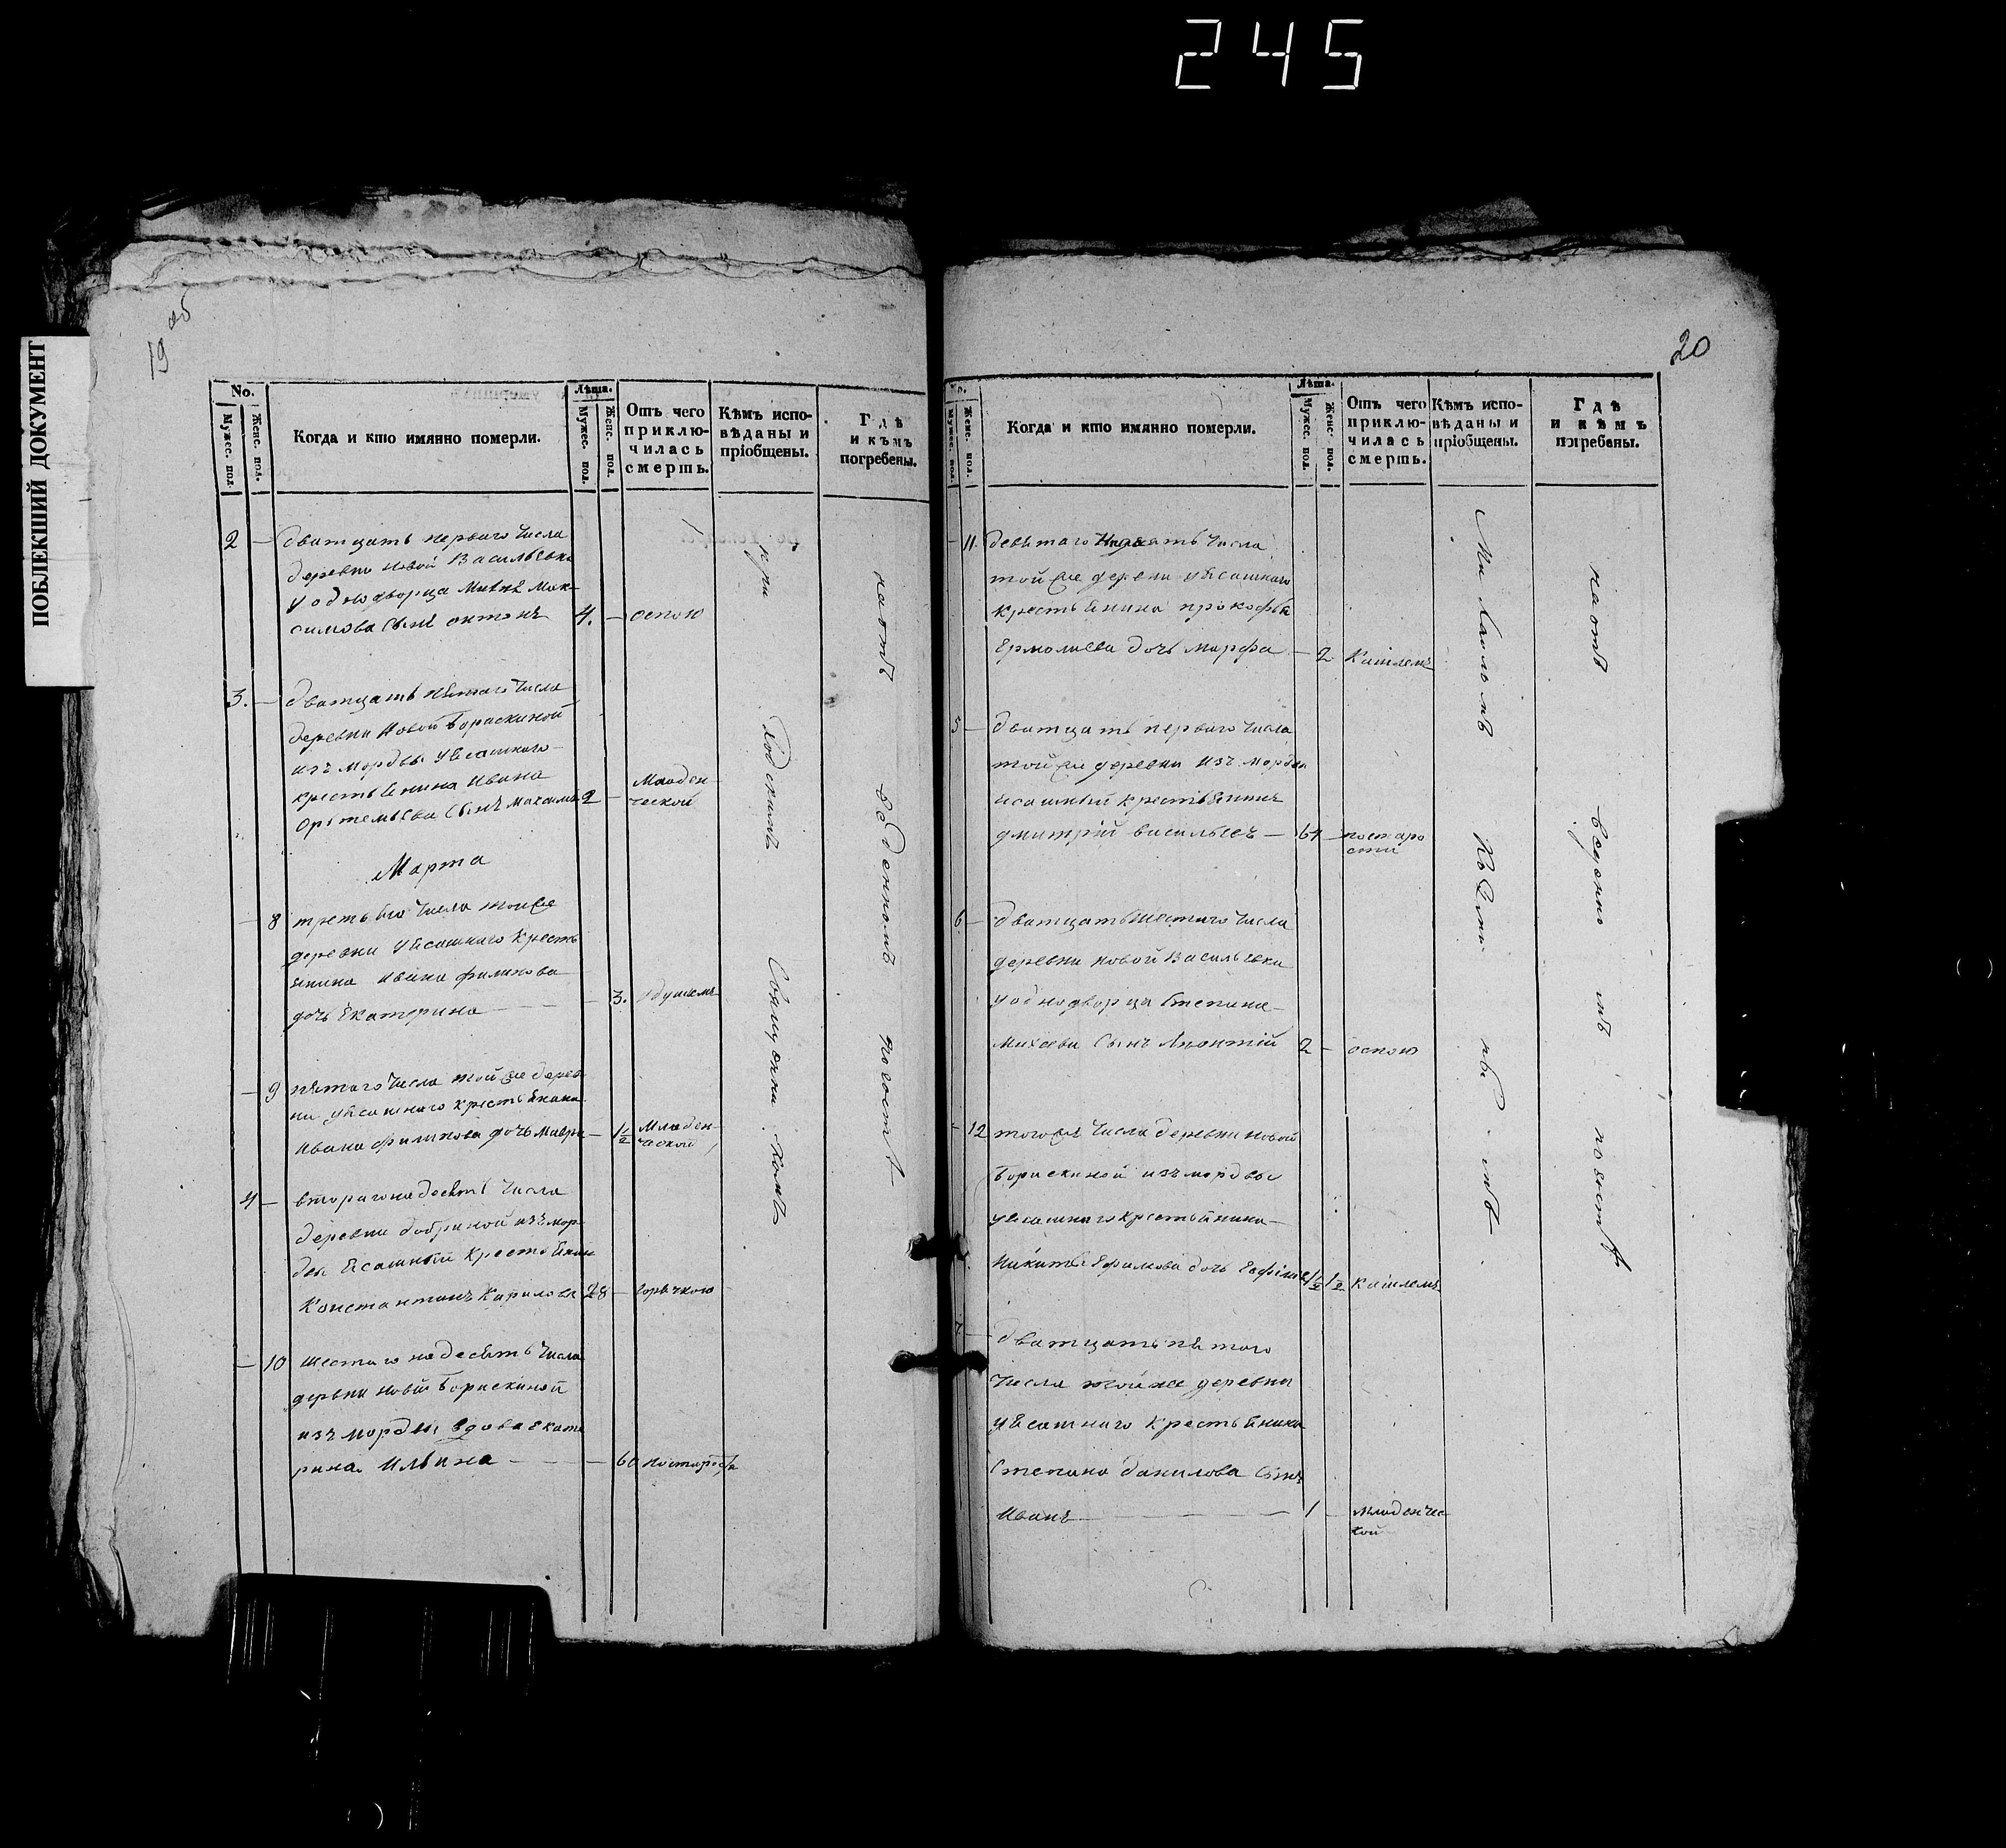 245
ПОБЛЕКШИЙ ДОКУМЕНТ
19 об
No.
Мужес. пол.
Женс. пол.
Когда и кто имянно померли.
Лѣта.
Мужес. пол.
Женс. пол.
Отъ чего
приклю-
чилась
смерть.
Кѣмъ испо-
вѣданы и
пріобщены.
Гдѣ
и кѣмъ
погребены.
2 — дватцать перваго числа
деревни новой Васильевки
у однодворца Мак-
симова сынъ антонъ 4. — оспою
3. — дватцать пятаго числа
деревни Новой Борискиной
изъ мордвы уясашнаго
крестьянина Ивана
Артемьева сынъ 2 — Младен-
ческой
Марта
— 8 третьяго числа тойже
деревни уясашнаго кресть
янина Ивана филипова
дочь Екатерина — 3.
— 9 пятаго числа тойже дерев
ни уясашнаго крестьянина
Ивана филипова дочь Мавра — 1½ Младен-
ческой
4 — втораго надесять числа
деревни добриной изъ мор
двы ясашный крестьянин
Константинъ Карилова 28 — горячкою
— 10 шестаго надесять числа
деревни новой Борискиной
изъ мордвы вдова екате
рина Ильина — 60 постарости
при
на
отведенномъ погостѣ
20
No.
Мужес. пол.
Женс. пол.
Когда и кто имянно померли.
Лѣта.
Мужес. пол.
Женс. пол.
Отъ чего
приклю-
чилась
смерть.
Кѣмъ испо-
вѣданы и
пріобщены.
Гдѣ
и кѣмъ
погребены.
— 11. девятаго числа
тойже деревни уясашнаго
крестьянина прокофья
Ермолаева дочь марфа — 2 Кашлемъ
5 — дватцать перваго числа
тойже деревни изъ мордвы
ясашный крестьянинъ
дмитрій васильевъ — 64 — постаро
сти
6 — дватцать шестаго числа
деревни новой Васильевки
у однодворца Степана
Михеева сынъ 2 — оспою
— 12 тогоже числа деревни новой
Борискиной изъ мордвы
уясашнаго крестьянина
Никиты Ефимова дочь ½ Кашлемъ
7 — дватцать пятого
числа тойже деревни
уясашнаго крестьянина
Степана данилова сынъ
Иванъ — 1 — младенчес
кой